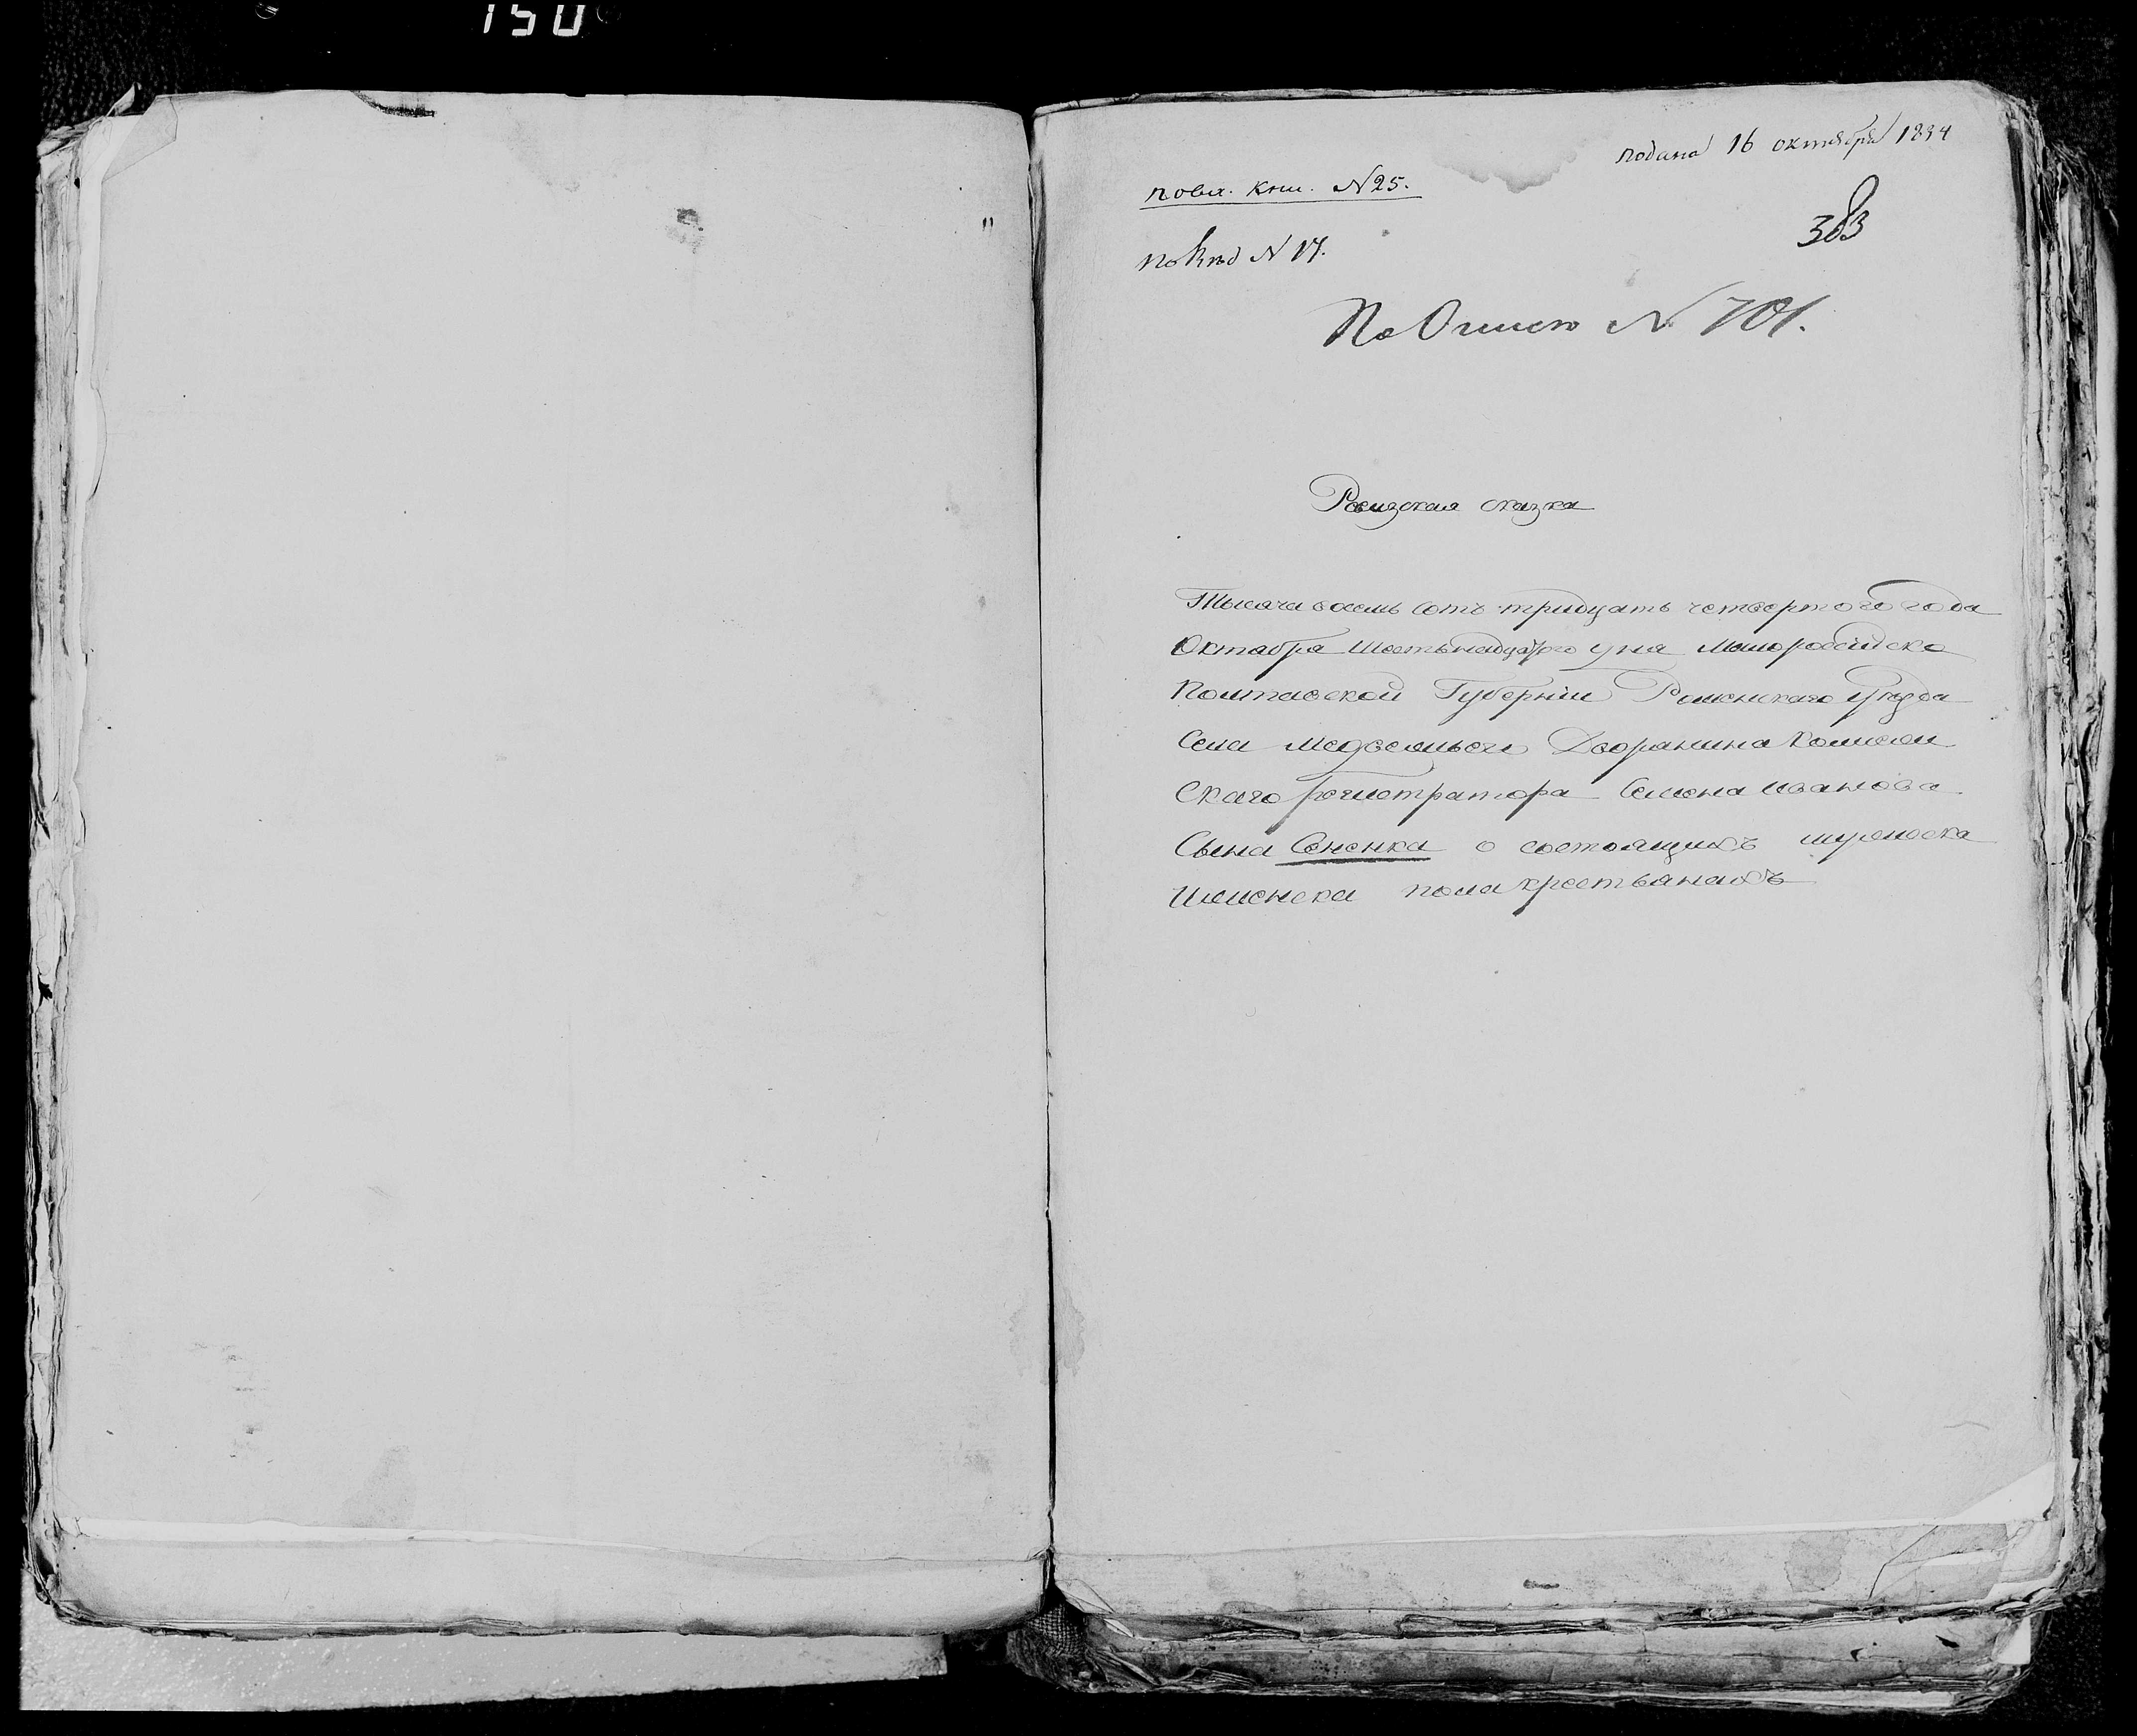 150
подана 16 октября 1834
повя. кни. N25.
383
по N 17.
По Описи N 701.
Ревизская сказка
Тысяча восемь сотъ тридцать четвертого года
Октабря шестьнадцатаго дня Малороссійско
Полтавской Губерніи Роменскаго Уѣзда
Села Медвежьего Дворянина Колежи
Скаго регистратора Семена Иванова
Сына Сененка о состоящихъ мужеска
Иженска пола крестьянахъ